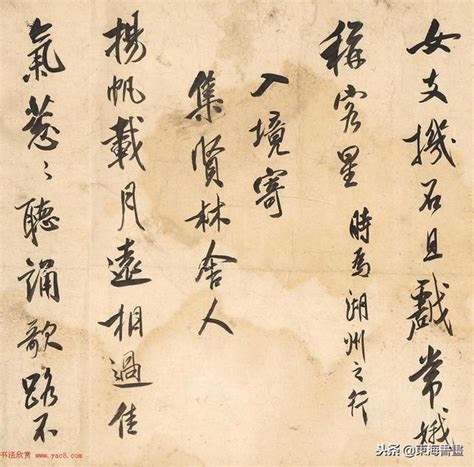 女支機石且戲常娥
稱客星 時為湖州之行
入境寄
集賢林舍人
揚帆載月遠相過佳
氣葱〻聽誦歌路不
书法欣赏 www.yac8.com
头条 @東海書畫